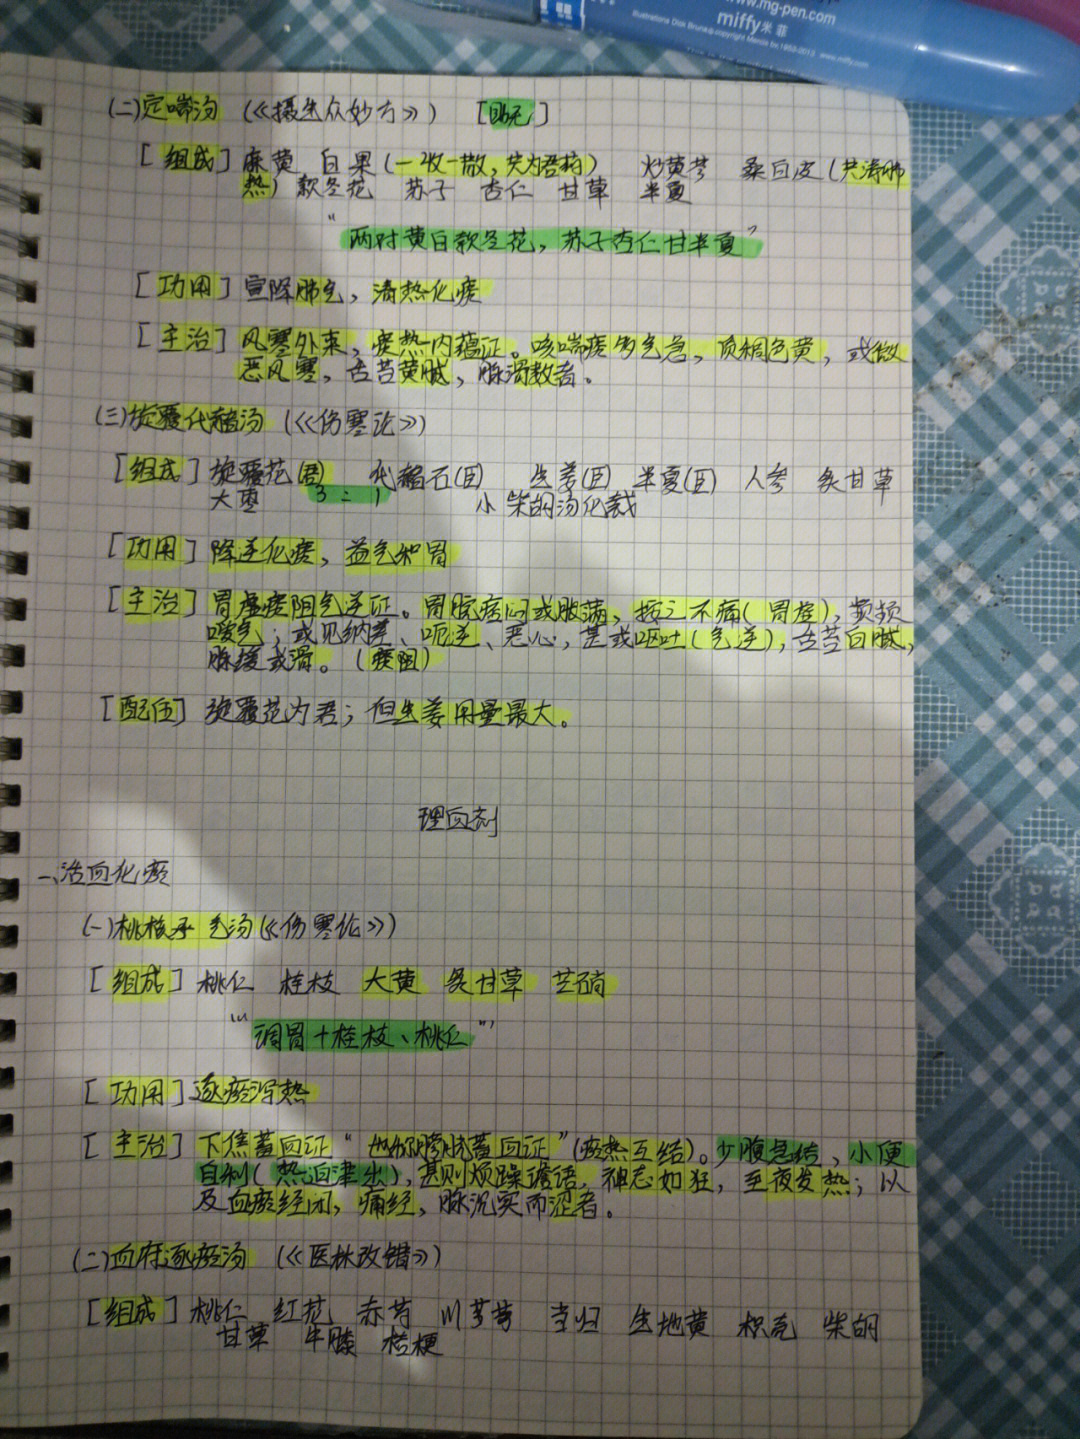 www.mg-pen.com
miffy米菲
Illustrations Dick Bruna © copyright Mercis bv,1953-2013 www.miffy.com
(二)定喘汤 (《摄生众妙方》) [助记]
[组成] 麻黄 白果(一收一散,共为君药) 炒黄芩 桑白皮(共清肺
热) 款冬花 苏子 杏仁 甘草 半夏
“两对黄白款冬花,苏子杏仁甘半夏”
[功用] 宣降肺气,清热化痰
[主治] 风寒外束,痰热内蕴证。咳喘痰多气急,质稠色黄,或微
恶风寒,舌苔黄腻,脉滑数者。
(三)旋覆代赭汤 (《伤寒论》)
[组成] 旋覆花(君) 代赭石(臣) 生姜(臣) 半夏(臣) 人参 炙甘草
大枣 3:1 小柴胡汤化裁
[功用] 降逆化痰,益气和胃
[主治] 胃虚痰阻气逆证。胃脘痞闷或胀满,按之不痛(胃虚),频频
嗳气;或见纳差、呃逆、恶心,甚或呕吐(气逆),舌苔白腻,
脉缓或滑。(痰阻)
[配伍] 旋覆花为君;但生姜用量最大。
理血剂
一、活血化瘀
(一)桃核承气汤(《伤寒论》)
[组成] 桃仁 桂枝 大黄 炙甘草 芒硝
“调胃+桂枝、桃仁”
[功用] 逐瘀泻热
[主治] 下焦蓄血证“ 膀胱蓄血证”(瘀热互结)。少腹急结,小便
自利(热迫津出),甚则烦躁谵语,神志如狂,至夜发热;以
及血瘀经闭,痛经,脉沉实而涩者。
(二)血府逐瘀汤 (《医林改错》)
[组成] 桃仁 红花 赤芍 川芎 当归 生地黄 枳壳 柴胡
甘草 牛膝 桔梗